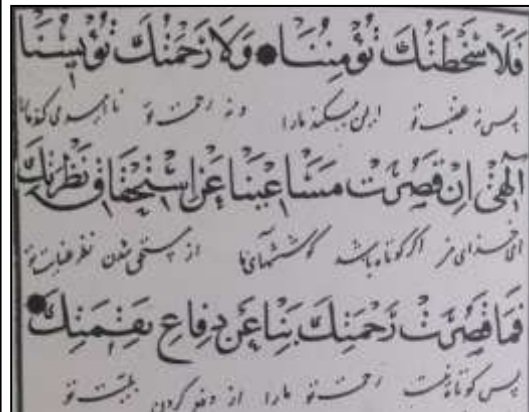 فَلَا سَخَطَتُكَ تُؤْمِنُنَا ● وَلَا رَحْمَتُكَ تُؤْيِسُنَا
پس نه غضب تو ایمن میکند مارا و نه رحمت تو ناامید میکند مارا
اِلٰهِیْ اِنْ قَصُرَتْ مَسَاعِیْنَا عَنِ اسْتِحْقَاقِ نَظْرَتِكَ
ای خدای من اگر کوتاه باشد کوششهای ما از مستحق شدن نظر عنایت تو
فَمَا قَصُرَتْ رَحْمَتُكَ بِنَا عَنْ دِفَاعِ نِقْمَتِكَ ●
پس کوتاه نیست رحمت تو مارا از دفع کردن تو